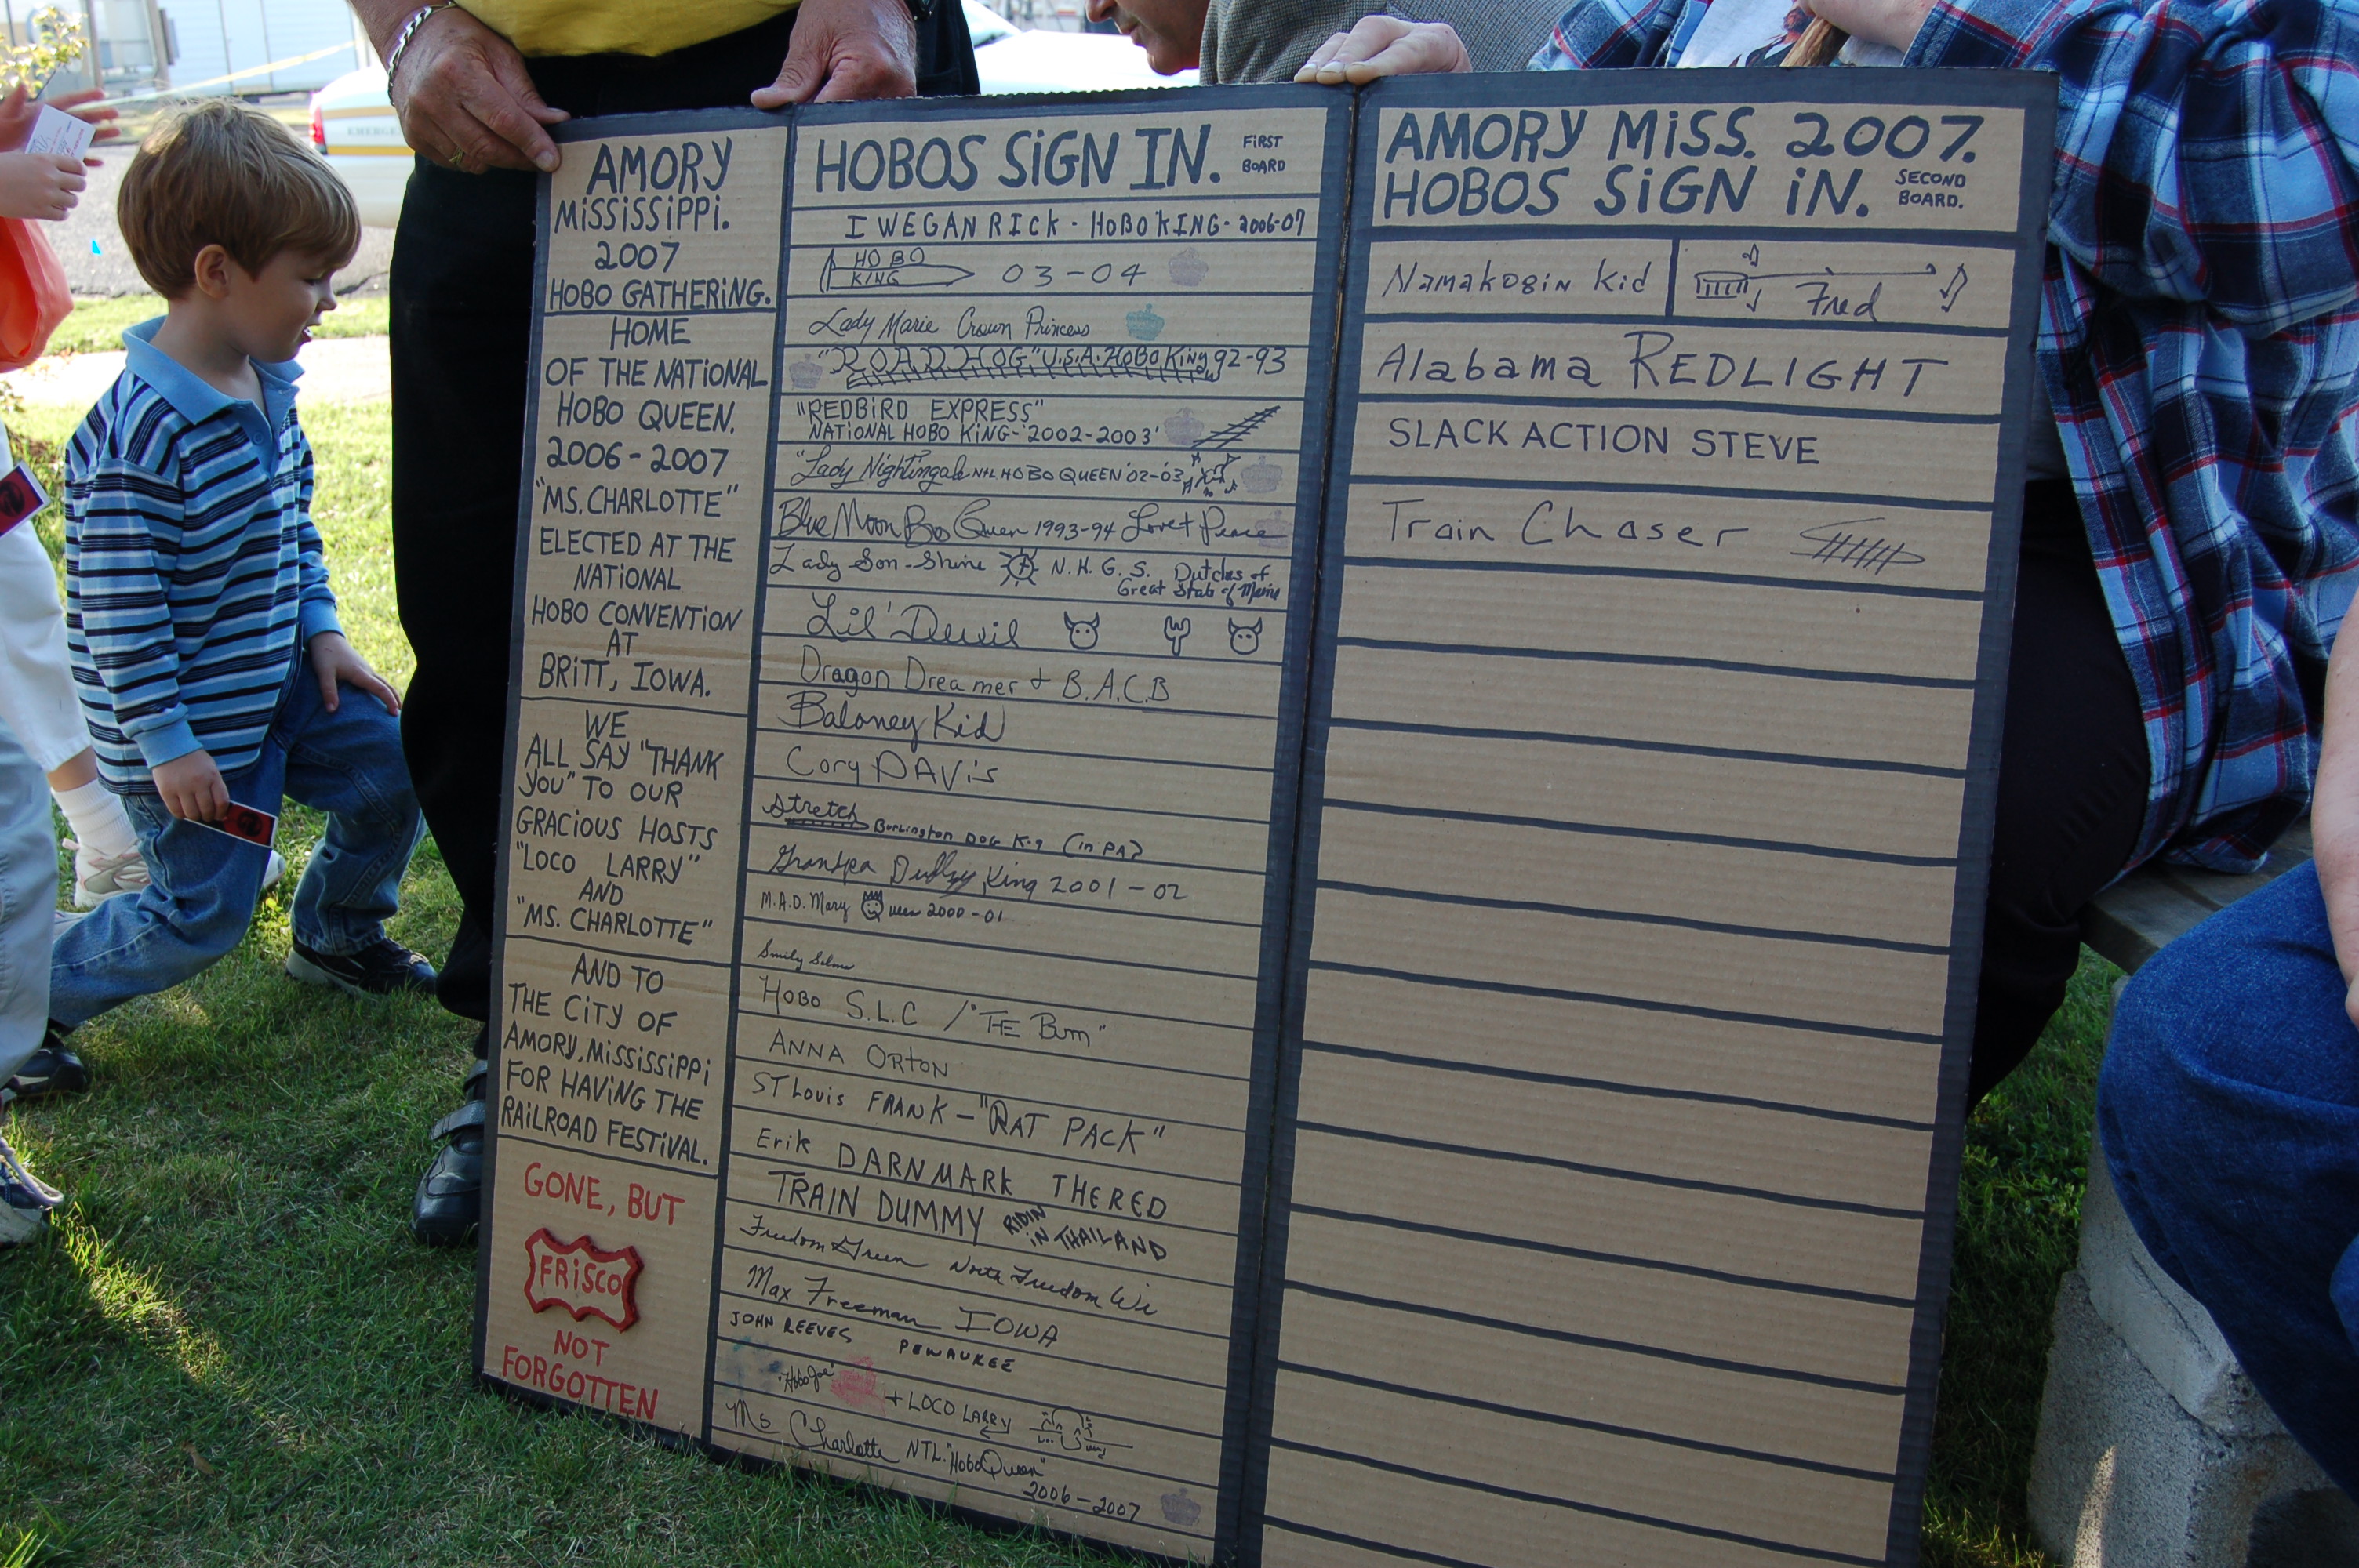 AMORY
MiSSiSSiPPi.
2007
HOBO GATHERiNG.
HOME
OF THE NATiONAL
HOBO QUEEN.
2006-2007
"MS. CHARLOTTE"
ELECTED AT THE
NATIONAL
HOBO CONVENTiON
AT
BRiTT, IOWA.
WE
ALL SAY "THANK
YOU" TO OUR
GRACiOUS HOSTS
"LOCO LARRY"
AND
"MS. CHARLOTTE"
AND TO
THE CiTY OF
AMORY, MiSSiSSiPPi
FOR HAViNG THE
RAiLROAD FESTiVAL.
GONE, BUT
FRiSCO
NOT
FORGOTTEN
HOBOS SiGN IN. FiRST BOARD
I WEGAN RICK - HOBO KING - 2006-07
HOBO
KING 03-04
Lady Marie Crown Princess
"ROAD HOG" U.S.A. HOBO King 92-93
"REDBIRD EXPRESS"
NATIONAL HOBO KING - '2002-2003'
"Lady Nightingale NTL HOBO QUEEN '02-'03
Blue Moon Bo Queen 1993-94 Love + Peace
Lady Son-Shine N.H.G.S. Dutches of
Great State of
Lil' Devil
Dragon Dreamer + B.A.C.B
Baloney Kid
Cory DAVis
Stretch Burlington DOG K-9 (in PA)
Grandpa Dudley King 2001-02
M.A.D. Mary Queen 2000-01
Smily
HOBO S.L.C / "THE Bum"
ANNA ORTON
ST Louis FRANK - "RAT PACK"
Erik DARNMARK THERED
TRAIN DUMMY RIDIN IN THAILAND
Freedom Green North Freedom Wi
Max Freeman IOWA
JOHN REEVES PEWAUKEE
"Hobo Joe" + LOCO LARRY
Ms Charlotte NTL. "Hobo Queen"
2006-2007
AMORY MiSS. 2007.
HOBOS SiGN iN. SECOND BOARD.
Namakogin Kid Fred
Alabama REDLIGHT
SLACK ACTION STEVE
Train Chaser